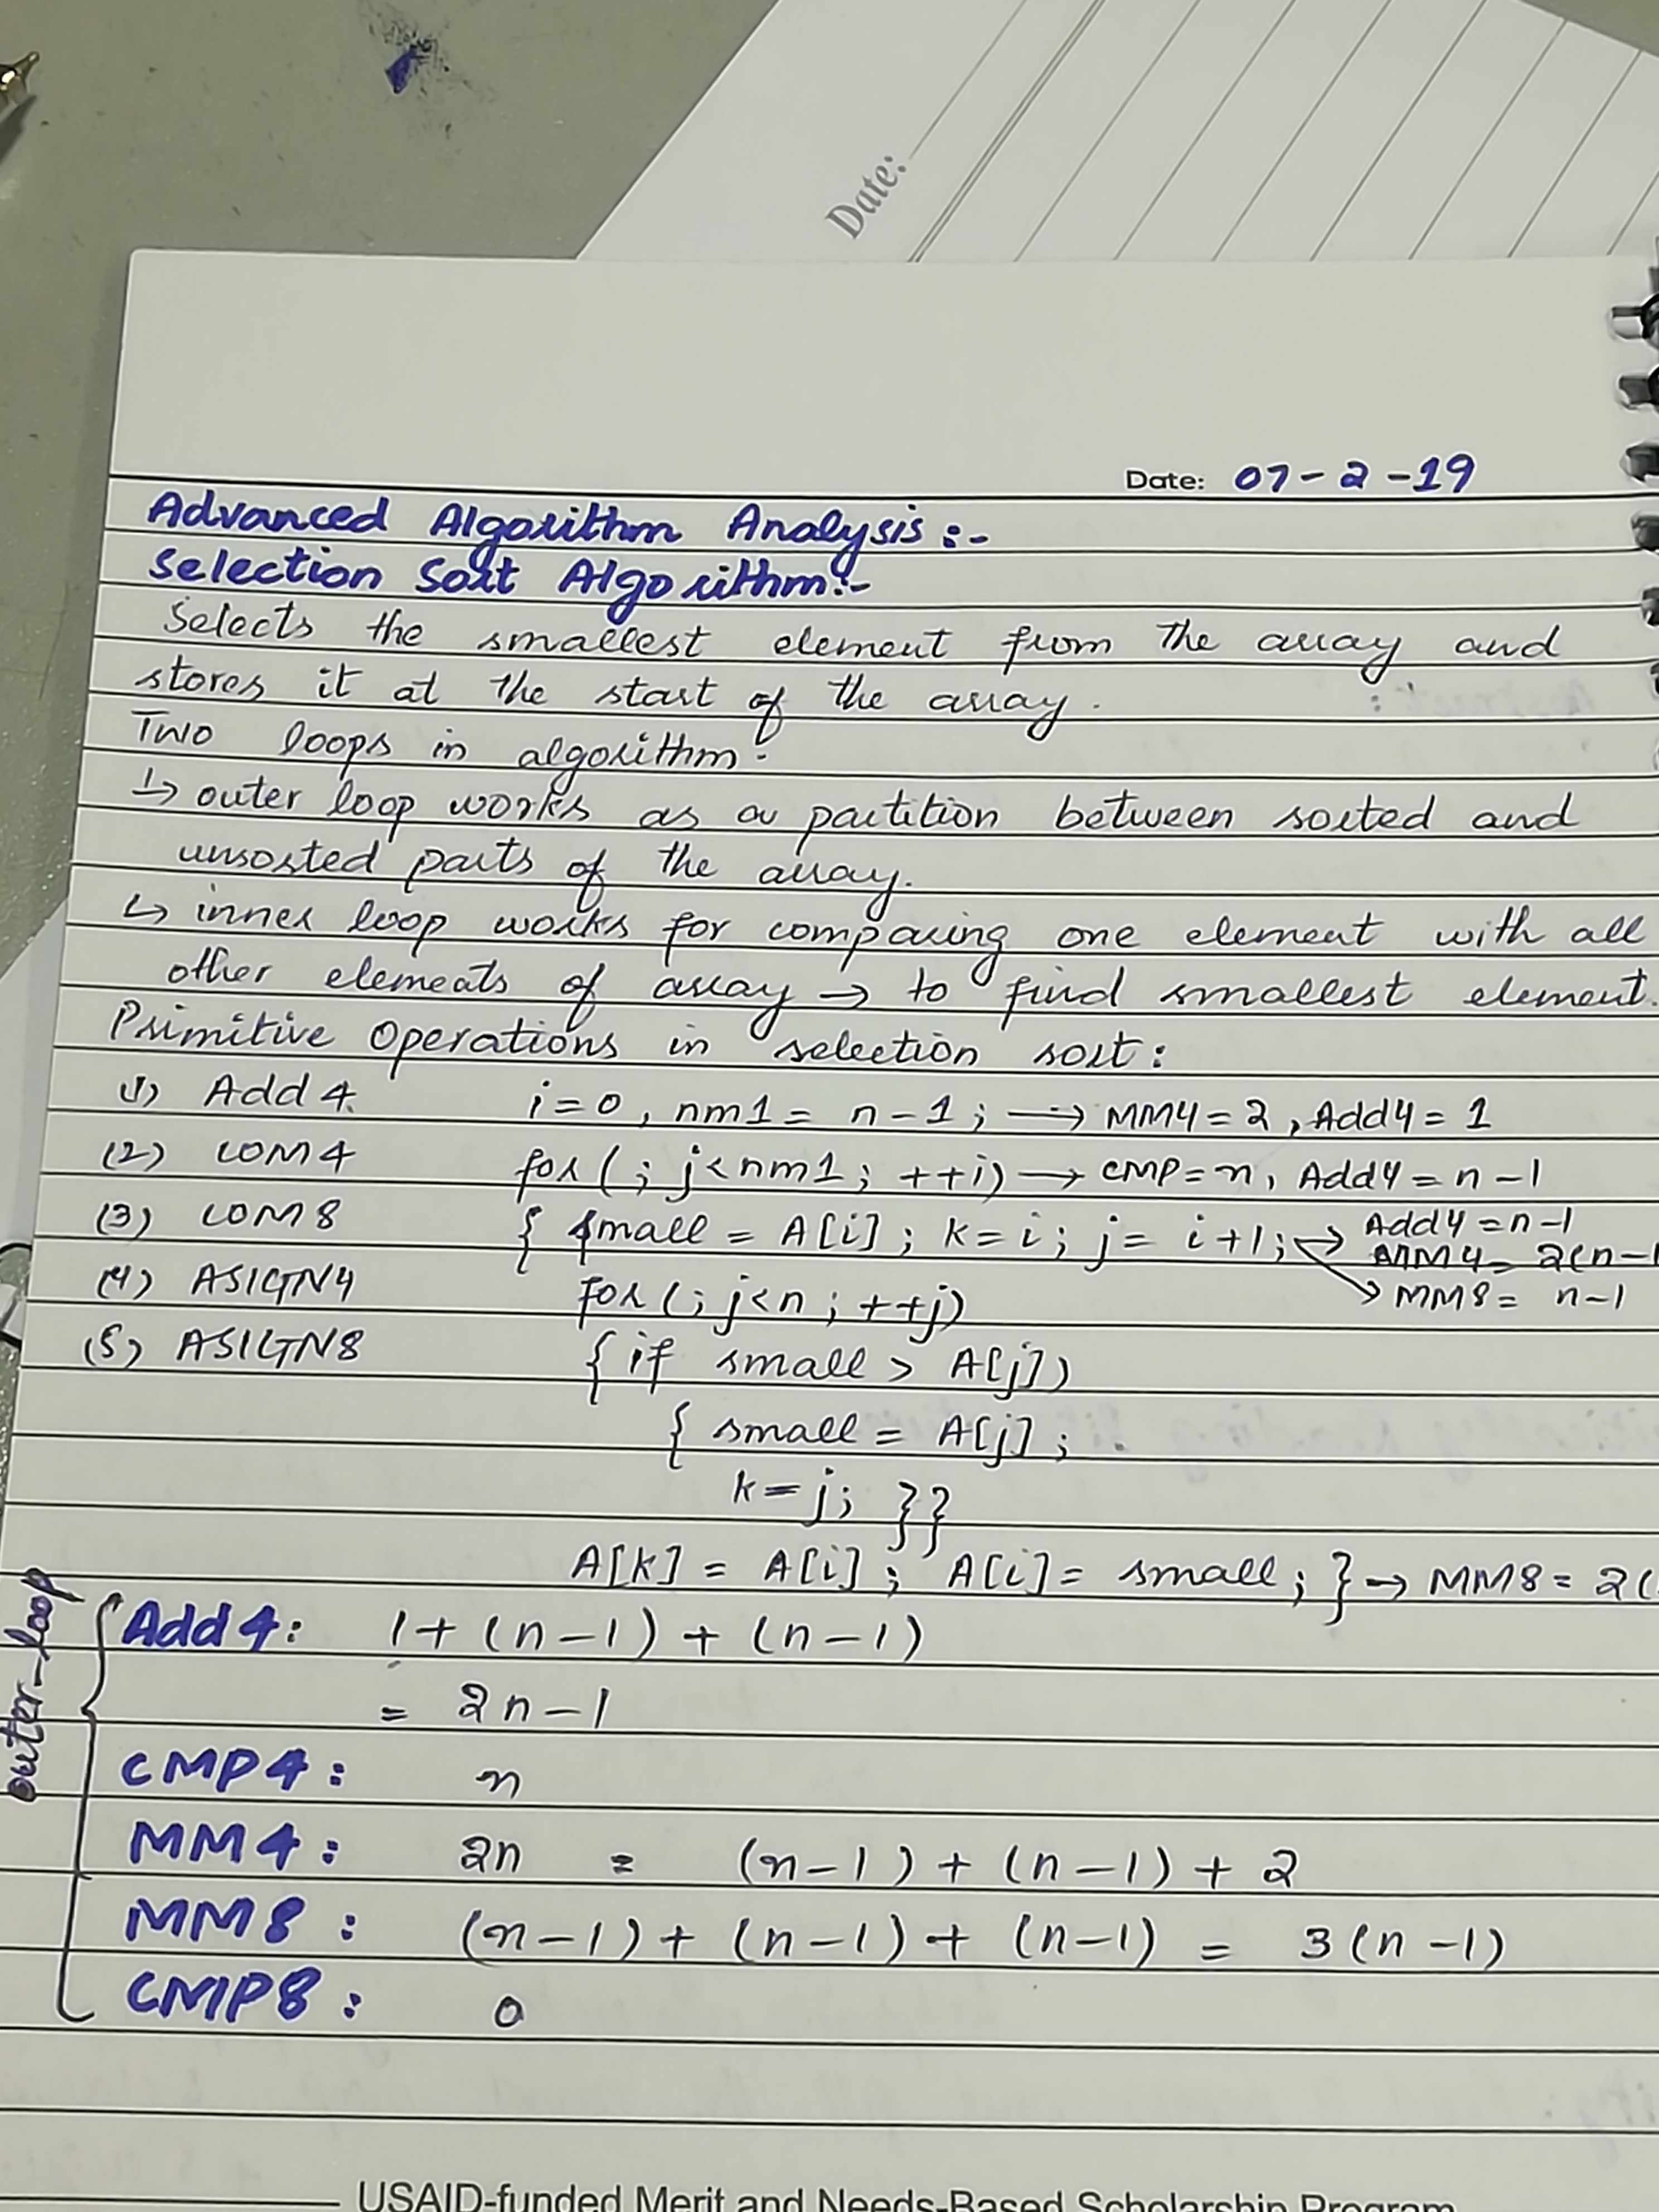 Date:
Date: 07-2-19
Advanced Algorithm Analysis:-
Selection Sort Algorithm:-
Selects the smallest element from the array and
stores it at the start of the array.
Two loops in algorithm:
↳ outer loop works as a partition between sorted and
unsorted parts of the array.
↳ inner loop works for comparing one element with all
other elements of array → to find smallest element.
Primitive Operations in selection sort:
(1) Add 4 i=0, nm1= n-1; → MM4=2, Add4=1
(2) COM4 for(; j<nm1; ++i) → CMP=n, Add4=n-1
(3) COM8 { small = A[i]; k=i; j= i+1; → Add4=n-1
MM4= 2(n-1
→ MM8= n-1
(4) ASIGN4 for(; j<n; ++j)
(5) ASIGN8 { if small > A[j])
{ small = A[j];
k=j; }}
A[k] = A[i]; A[i]= small; } → MM8= 2(
outer-loop
Add4: 1+(n-1)+(n-1)
= 2n-1
CMP4: n
MM4: 2n = (n-1)+(n-1)+2
MM8: (n-1)+(n-1)+(n-1) = 3(n-1)
CMP8: 0
USAID-funded Merit and Needs-Based Scholarship Program